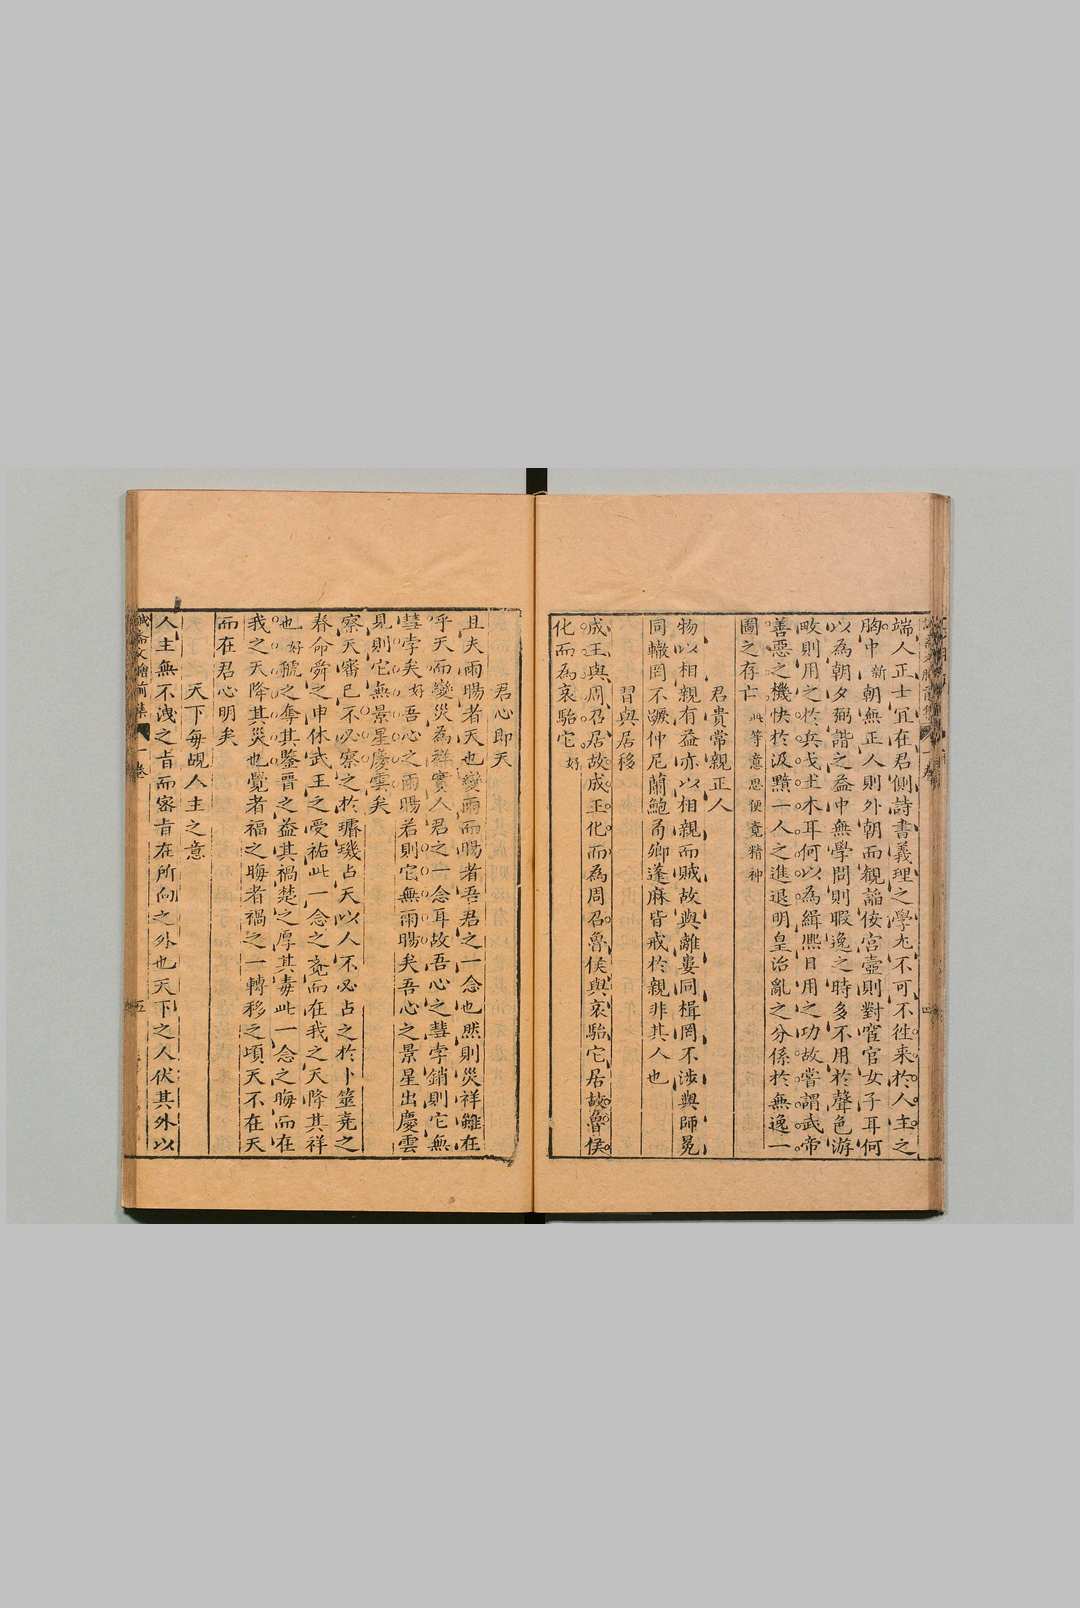 端人正士冝在君側詩書義理之學尤不可不徃来於人主之
胸中新朝無正人則外朝而観謟佞宫壼則對宦官女子耳何
以為朝夕弼諧之益中無學問則暇逸之時多不用於聲色游
畋則用之於兵戈土木耳何以為緝熈日用之功故嘗謂武帝
善惡之機快於汲黯一人之進退明皇治亂之分係於無逸一
圖之存亡此等意思便竟精神
君貴常親正人
物以相親有益亦以相親而賊故與離婁同楫罔不涉與師冕
同轍罔不蹶仲尼蘭鮑荀卿蓬麻皆戒於親非其人也
習與居移
成王與周召居故成王化而為周召魯侯與哀駘它居故魯侯
化而為哀駘它好
君心即天
且夫雨暘者天也變雨而暘者吾君之一念也然則災祥雖在
乎天而變災為祥實人君之一念耳故吾心之彗孛銷則它無
彗孛矣好吾心之雨暘若則它無雨暘矣吾心之景星出慶雲
見則它無景星慶雲矣
察天審已不必察之於璿璣占天以人不必占之於卜筮尭之
春命舜之申休武王之受祐此一念之𮗜而在我之天降其祥
也好虢之奪其鑒晉之益其禍楚之厚其毒此一念之晦而在
我之天降其災也覺者福之晦者禍之一轉移之頃天不在天
而在君心明矣
天下每覘人主之意
人主無不洩之㫖而宻㫖在所向之外也天下之人伏其外以
誠斎文膾前集 一巻 五